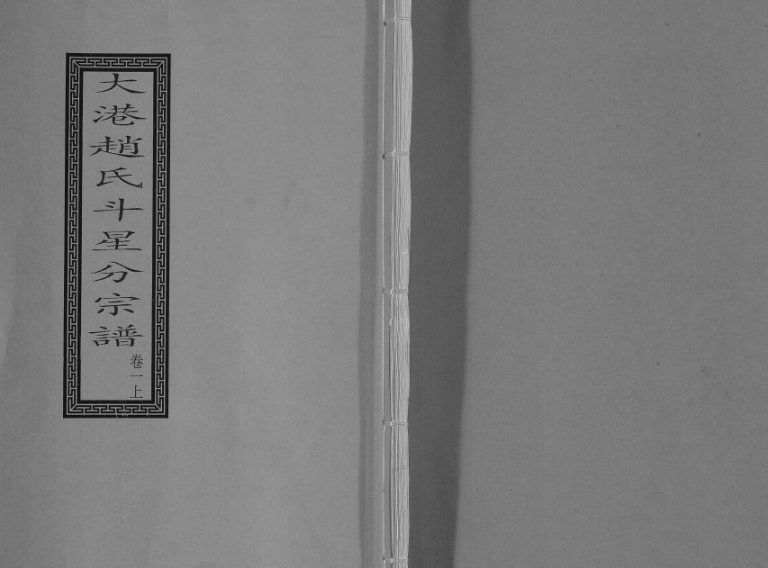 大港趙氏斗星分宗譜
卷一上